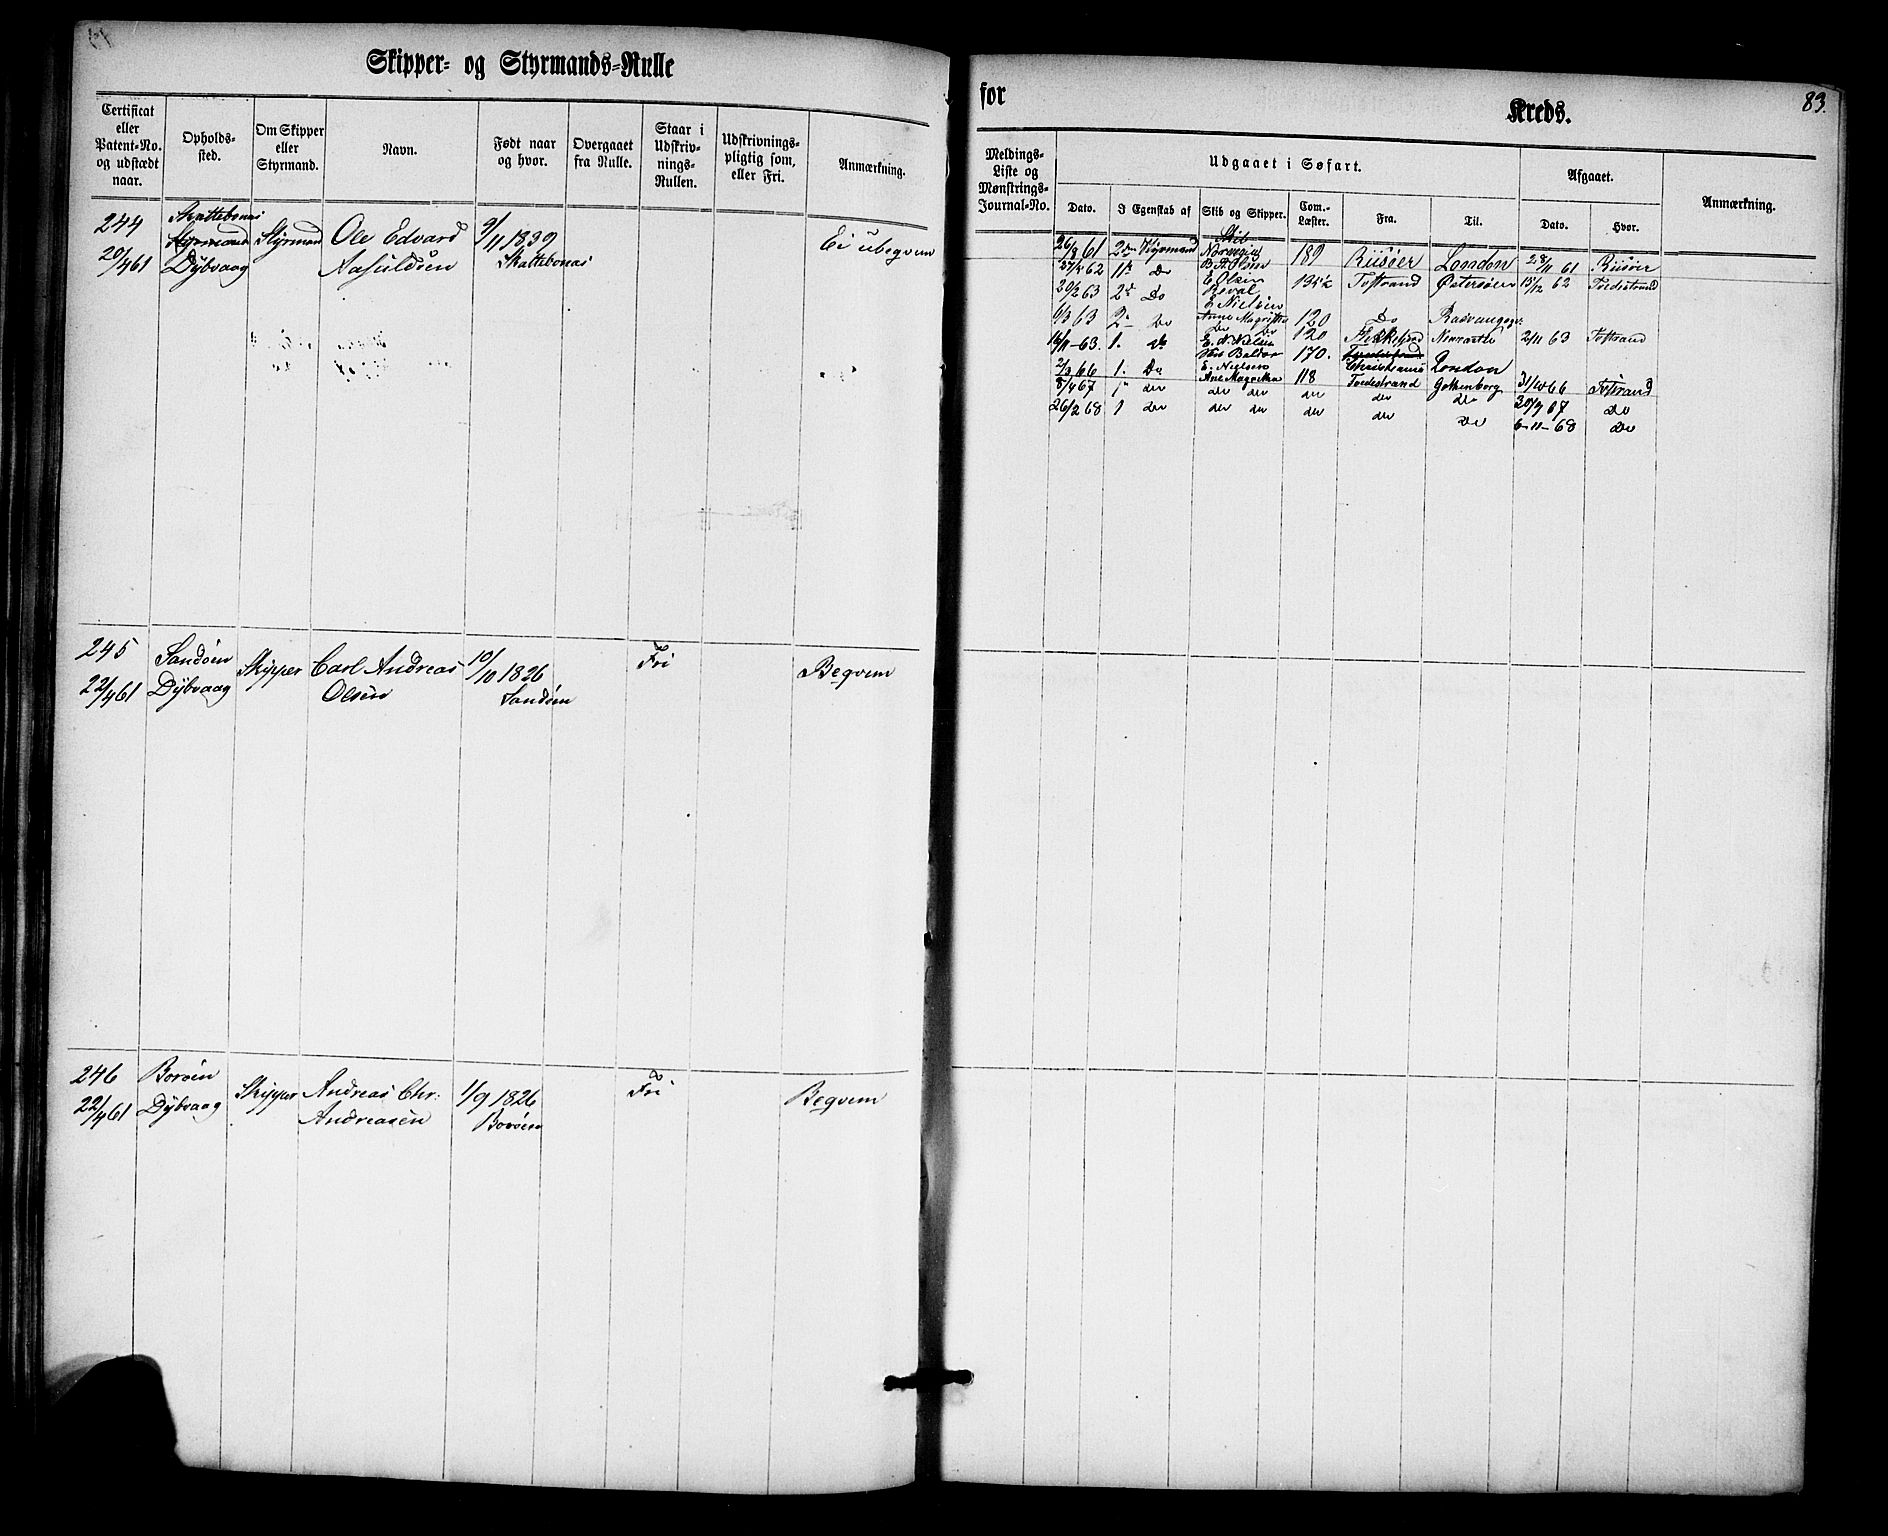 Skipper- og Styrmands-Rulle
for
Kreds.
83.
Certificat eller Patent-No. og udstædt naar.
Opholdssted.
Om Skipper eller Styrmand.
Navn.
Født naar og hvor.
Overgaaet fra Rulle.
Staar i Udskrivnings-Rullen.
Udskrivningspligtig som, eller Fri.
Anmærkning.
Meldings-Liste og Mønstrings-Journal-No.
Udgaaet i Søfart.
Afgaaet.
Anmærkning.
Dato.
I Egenskab af
Skib og Skipper.
Com.-Læster.
Fra.
Til.
Dato.
Hvor.
244
20/4 61
Skattebonæs
Styrmand
Dybvaag
Styrmand
Ole Edvard
Aasuldsen
9/11 1839
Skattebonæs
Ei ubegvem
26/8 61 2den Styrmand 189 Risøer London 28/11 61 Risøer
62 1ste Do B. A. Olsen 135½ Tvttrand Østersøen 15/12 62 Tvedestrand
20/2 63 2d Do E. Nielsen
6/3 63 2d Do Anne Magritha 120 Do
16/11-63. 1. Do E. N. Nielsen 120 2/11 63 Tvttrand
2/3 66 1. Do E. Nielsen 170. London 31/10 66 Tvttrand
8/4 67 1ste do Ane Magretha 118 Tvedestrand Gothenborg 30/9 67 Do
26/2 68 1 do do do do do do 6-11-68 Do
245
22/4 61
Sandøen
Dybvaag
Skipper
Carl Andreas
Olsen
10/10 1826
Sandøen
Fri
Begvem
246
22/4 61
Borøen
Dybvaag
Skipper
Andreas Chr:
Andreasen
1/9 1826
Borøen
Fri
Begvem